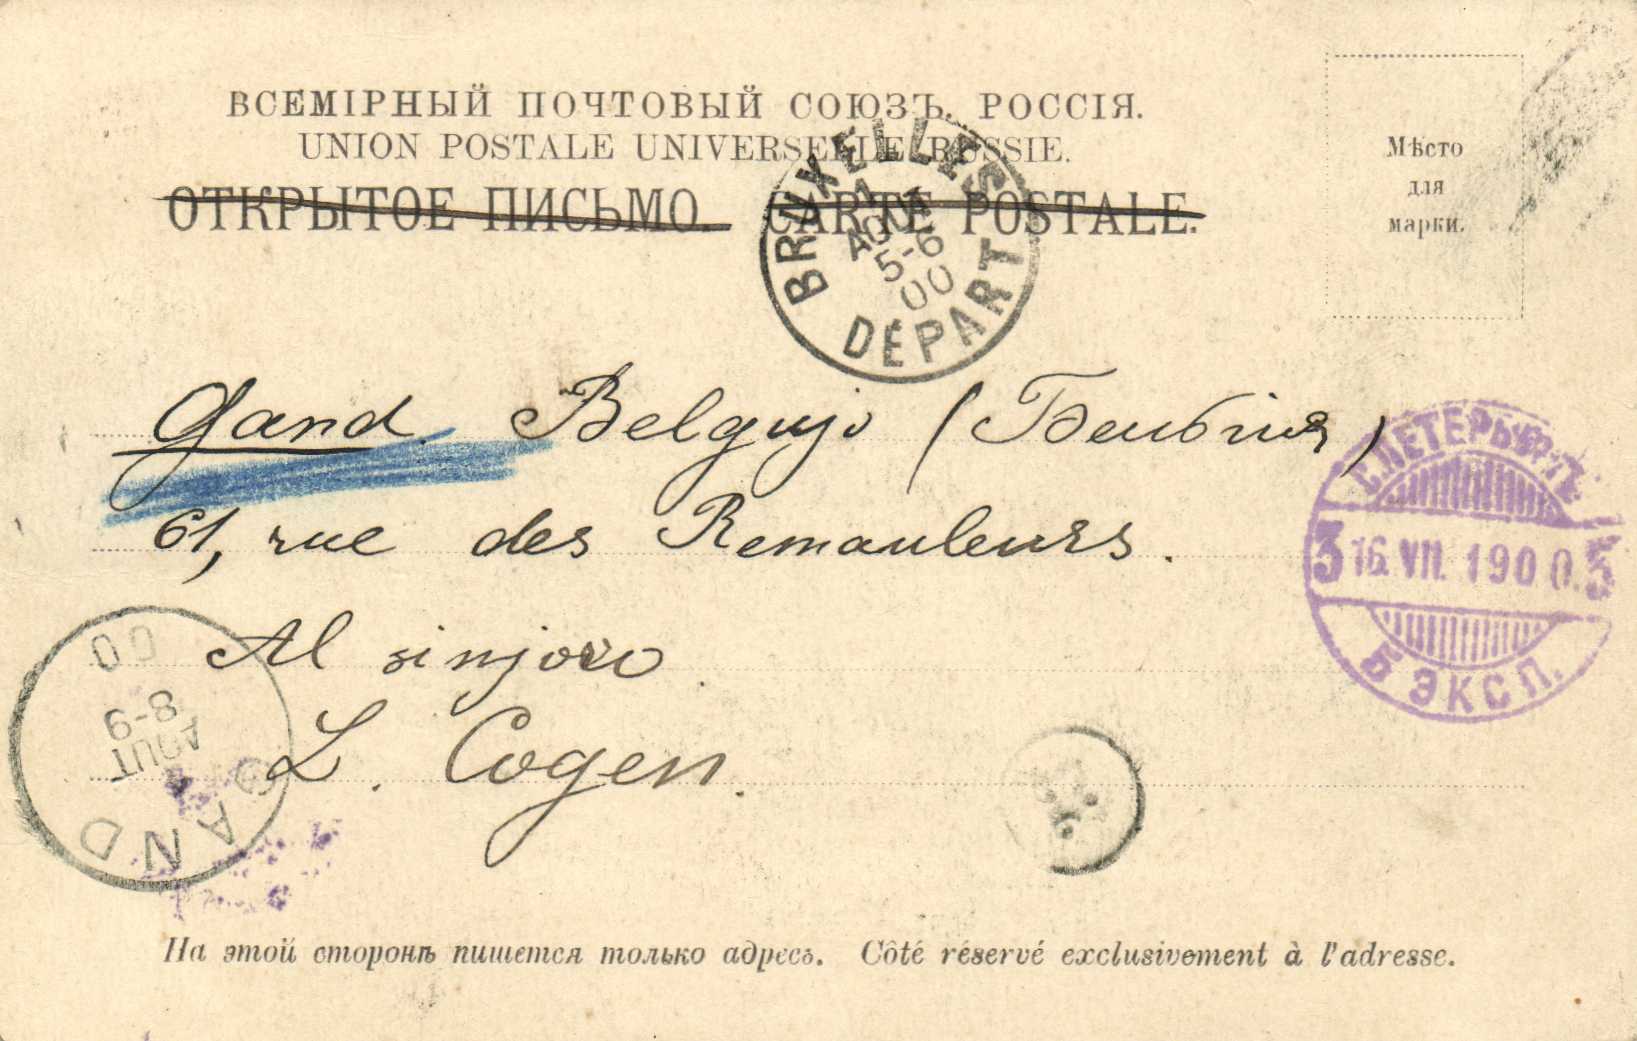 ВСЕМІРНЫЙ ПОЧТОВЫЙ СОЮЗЪ. РОССІЯ.
UNION POSTALE UNIVERSELLE RUSSIE.
ОТКРЫТОЕ ПИСЬМО. CARTE POSTALE.
Мѣсто
для
марки.
BRUXELLES
1
AOUT
5-6
00
DÉPART
Gand. Belgujo (Бельгія)
61, rue des Remouleurs.
Al sinjoro
L. Cogen.
С.ПЕТЕРБУРГЪ
3 16.VII.1900. 3
5 ЭКСП.
GAND
AOUT
8-9
00
На этой сторонѣ пишется только адресъ. Côté réservé exclusivement à l'adresse.